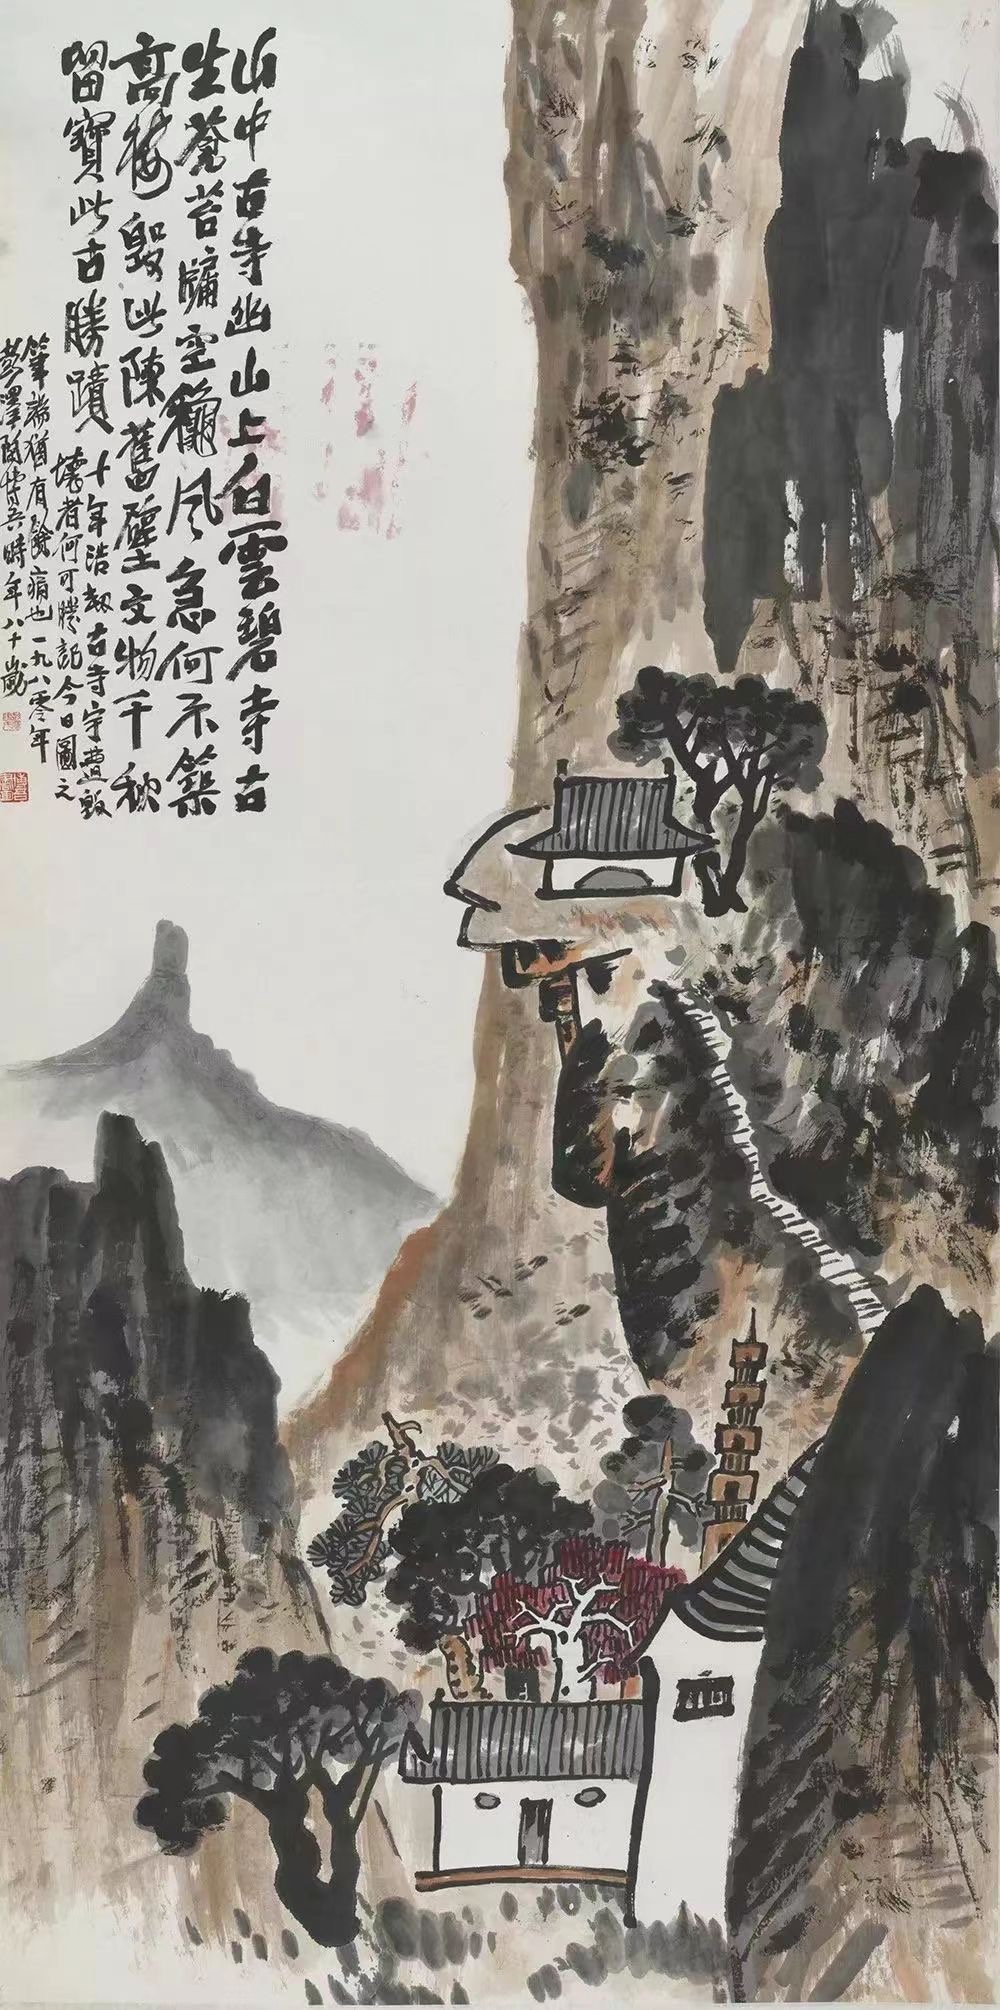 山中古寺幽山上白雲碧寺古
生蒼苔牖空龕風急何不築
高樓毀此陳舊壁文物千秋
留寶此古勝蹟 十年浩劫古寺宇遭毀
壞者何可勝記今日圖之
筆端猶有餘痛也一九八零年
彭澤陶博吾時年八十歲